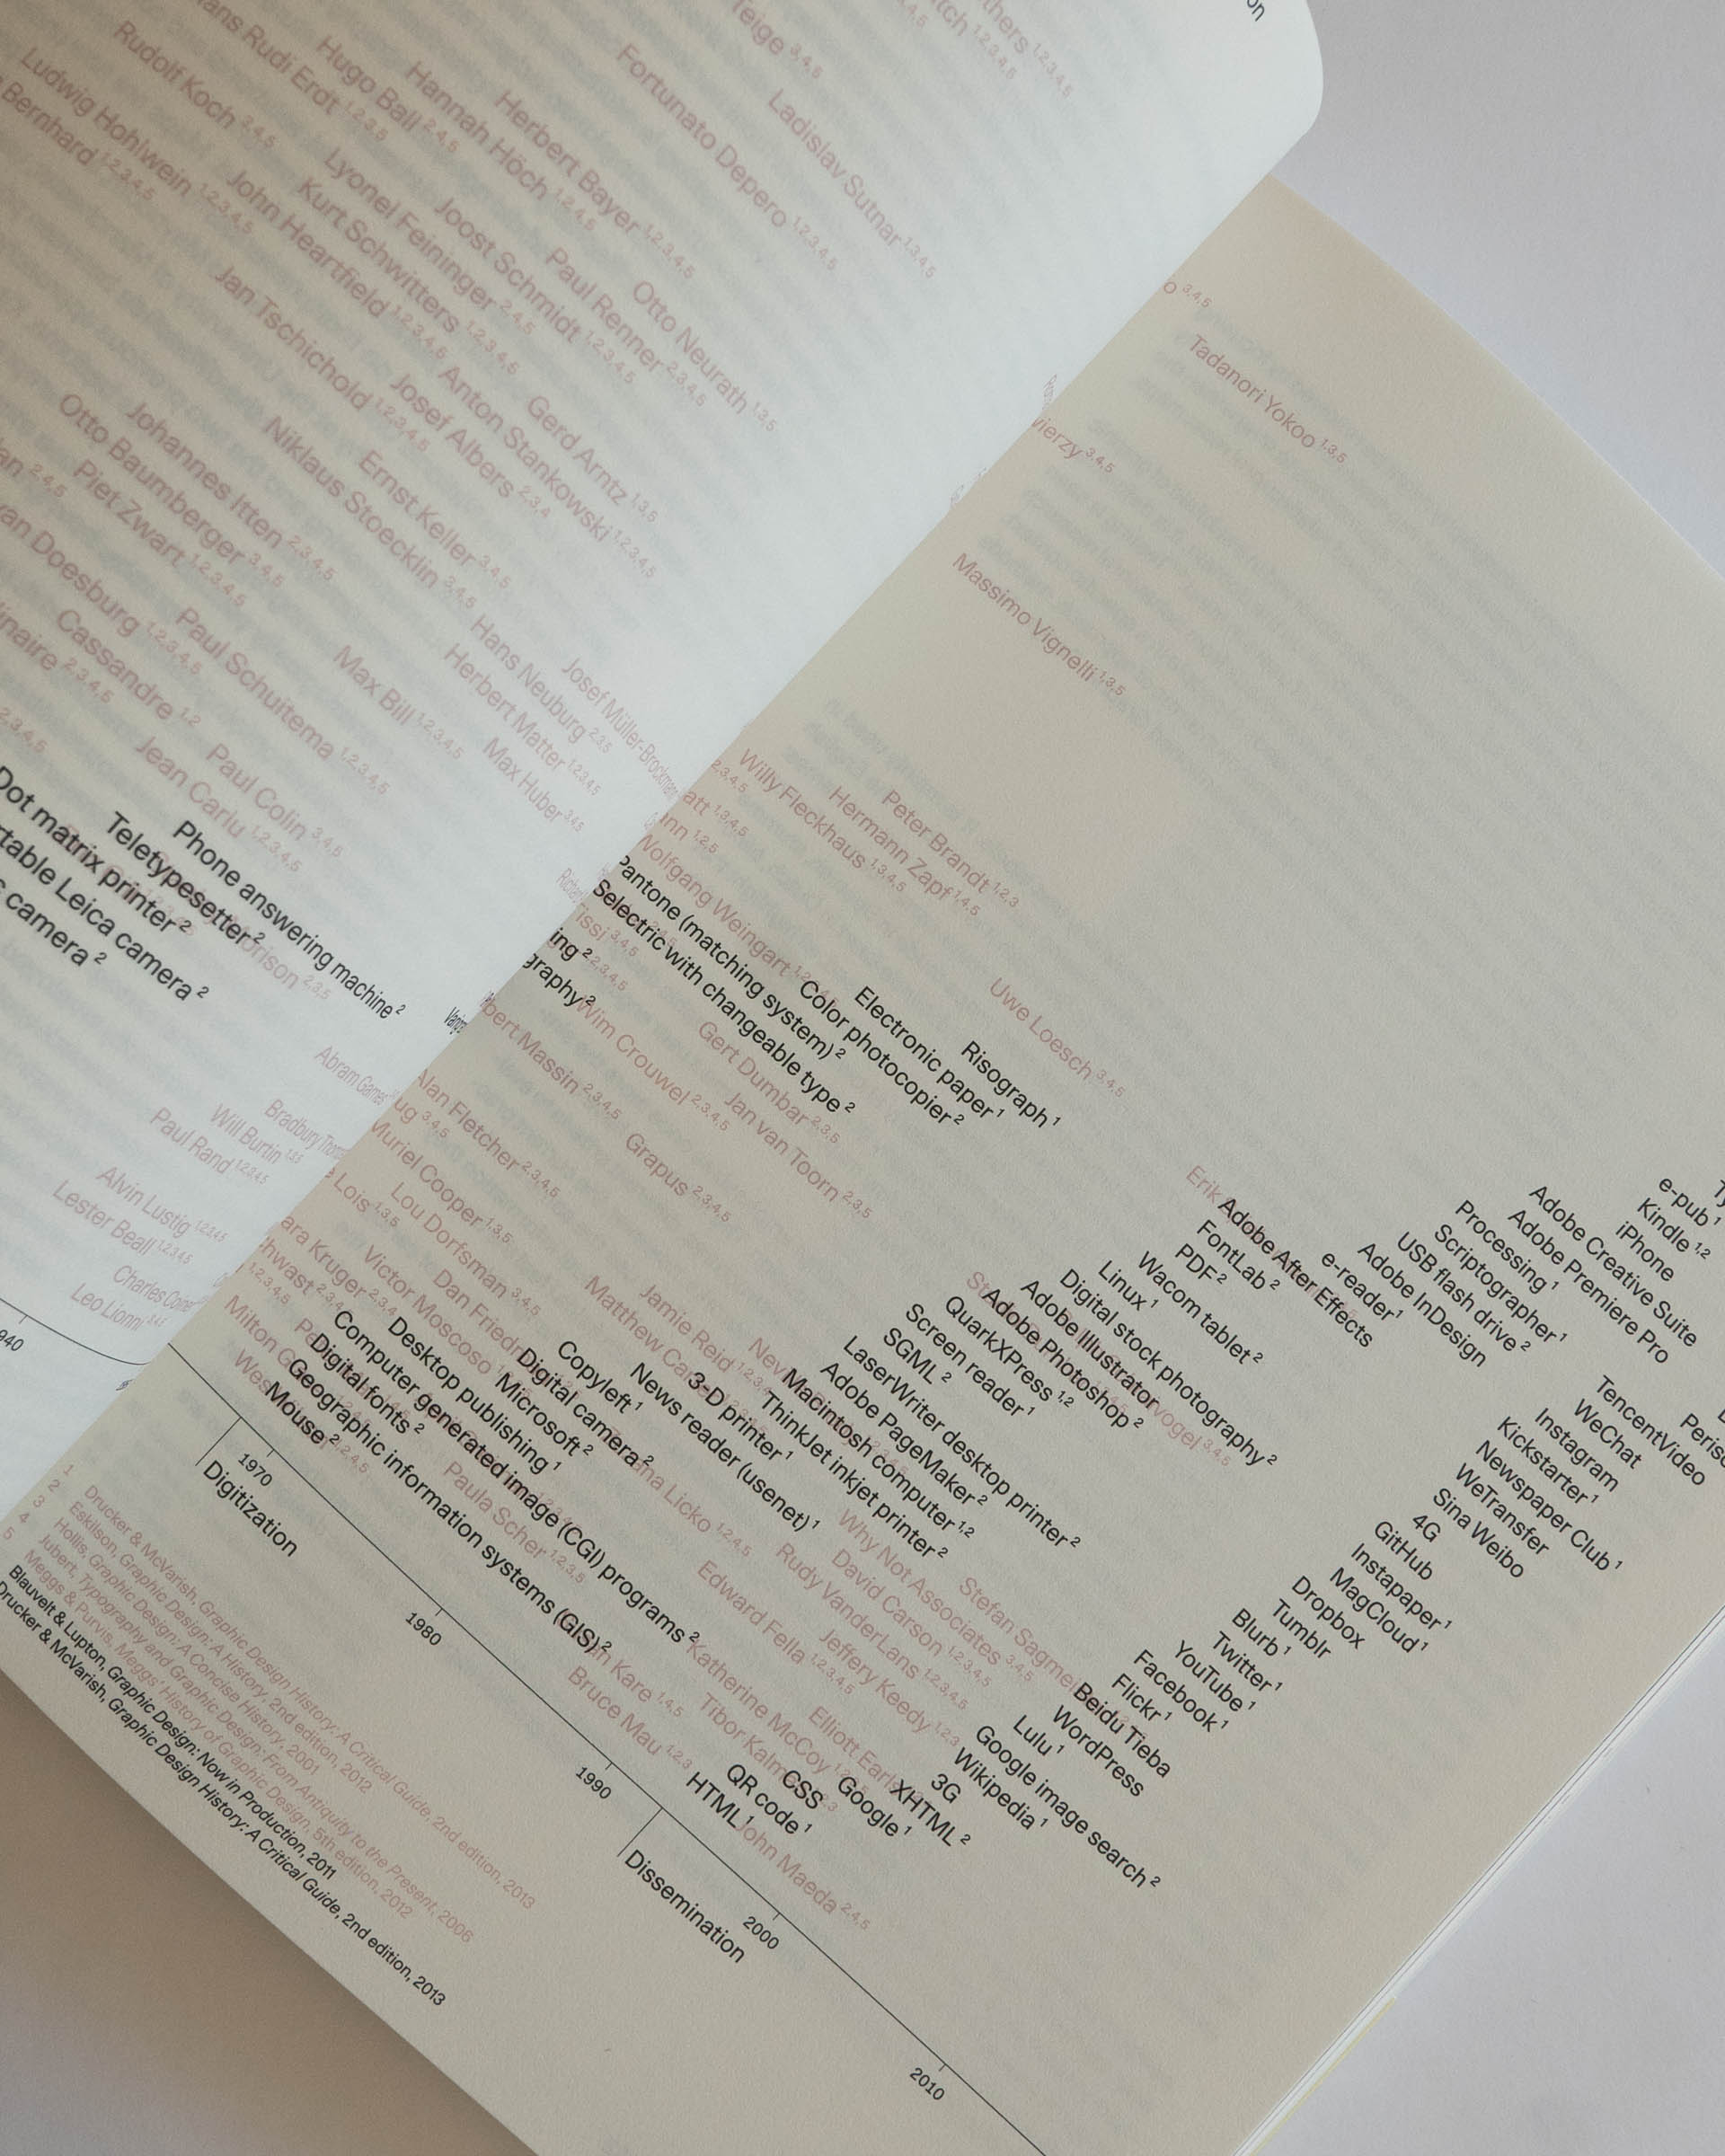 Ladislav Sutnar 1,3,4,5
Fortunato Depero 1,2,3,4,5
Herbert Bayer 1,2,3,4,5
Hannah Höch 1,2,4,5
Hugo Ball 2,4,5
Rudi Erdt 1,2,3,5
Rudolf Koch 2,4,5
Ludwig Hohlwein 1,2,3,4,5
Bernhard 1,2,3,4,5
Otto Neurath 1,3,5
Paul Renner 2,3,4,5
Joost Schmidt 1,2,3,4,5
Lyonel Feininger 2,4,5
Kurt Schwitters 1,2,3,4,5
John Heartfield 1,2,3,4,5
Jan Tschichold 1,2,3,4,5
Gerd Arntz 1,3,5
Anton Stankowski 1,2,3,4,5
Josef Albers 2,3,4
Ernst Keller 3,4,5
Niklaus Stoecklin 3,4,5
Johannes Itten 2,3,4,5
Otto Baumberger 3,4,5
Piet Zwart 1,2,3,4,5
van Doesburg 1,2,3,4,5
Cassandre 1,2
Paul Schuitema 1,2,3,4,5
Josef Müller-Brockmann
Hans Neuburg 2,3,5
Herbert Matter 1,2,3,4,5
Max Huber 3,4,5
Max Bill 1,2,3,4,5
Paul Colin 3,4,5
Jean Carlu 1,2,3,4,5
Phone answering machine 2
Teletypesetter 2
Dot matrix printer 2
Leica camera 2
camera 2
Abram Games
Will Burtin 1,3,5
Paul Rand 1,2,3,4,5
Alvin Lustig 1,2,3,4,5
Lester Beall 1,2,3,4,5
Charles Coiner
Leo Lionni 3,4,5
Tadanori Yokoo 1,3,5
Massimo Vignelli 1,3,5
Peter Brandt 1,2,3
Hermann Zapf 1,4,5
Willy Fleckhaus 1,3,4,5
Wolfgang Weingart
Uwe Loesch 3,4,5
Risograph 1
Electronic paper 1
Color photocopier 2
Pantone (matching system) 2
Selectric with changeable type 2
Wim Crouwel 2,3,4,5
Gert Dumbar 2,3,5
Jan van Toorn 2,3,5
Massin 2,3,4,5
Grapus 2,3,4,5
Alan Fletcher 2,3,4,5
Muriel Cooper 1,3,5
Lou Dorfsman 3,4,5
Lois 1,3,5
Kruger 2,3,4
Victor Moscoso
Jamie Reid
e-pub 1
Kindle 1,2
iPhone
Adobe Creative Suite
Adobe Premiere Pro
Processing 1
Scriptographer 1
USB flash drive 2
Adobe InDesign
e-reader 1
Adobe After Effects
FontLab 2
PDF 2
Wacom tablet 2
Linux 1
Digital stock photography 2
Adobe Illustrator
Adobe Photoshop 2
QuarkXPress 1,2
Screen reader 1
SGML 2
LaserWriter desktop printer 2
Adobe PageMaker 2
Macintosh computer 1,2
ThinkJet inkjet printer 2
3-D printer 1
News reader (usenet) 1
Copyleft 1
Digital camera 2
Microsoft 2
Desktop publishing 1
Computer generated image (CGI) programs 2
Digital fonts 2
Geographic information systems (GIS) 2
Mouse 2
Paula Scher 1,2,3,5
Licko 1,2,4,5
Why Not Associates 3,4,5
David Carson 1,2,3,4,5
Rudy VanderLans 1,2,3,4,5
Edward Fella 1,2,3,4,5
Jeffery Keedy 1,2,3
Katherine McCoy
Kare 1,4,5
Bruce Mau 1,2,3
John Maeda 2,4,5
TencentVideo
WeChat
Instagram
Kickstarter 1
Newspaper Club 1
WeTransfer
Sina Weibo
4G
GitHub
Instapaper 1
MagCloud 1
Dropbox
Tumblr
Blurb 1
Twitter 1
YouTube 1
Facebook 1
Flickr 1
Beidu Tieba
WordPress
Lulu 1
Google image search 2
Wikipedia 1
3G
XHTML 2
Google 1
CSS
QR code 1
HTML 1
1970
1980
1990
2000
2010
Digitization
Dissemination
1 Drucker & McVarish, Graphic Design History: A Critical Guide, 2nd edition, 2013
2 Eskilson, Graphic Design: A History, 2nd edition, 2012
3 Hollis, Graphic Design: A Concise History, 2001
4 Jubert, Typography and Graphic Design: From Antiquity to the Present, 2006
5 Meggs & Purvis, Meggs' History of Graphic Design, 5th edition, 2012
Blauvelt & Lupton, Graphic Design: Now in Production, 2011
Drucker & McVarish, Graphic Design History: A Critical Guide, 2nd edition, 2013